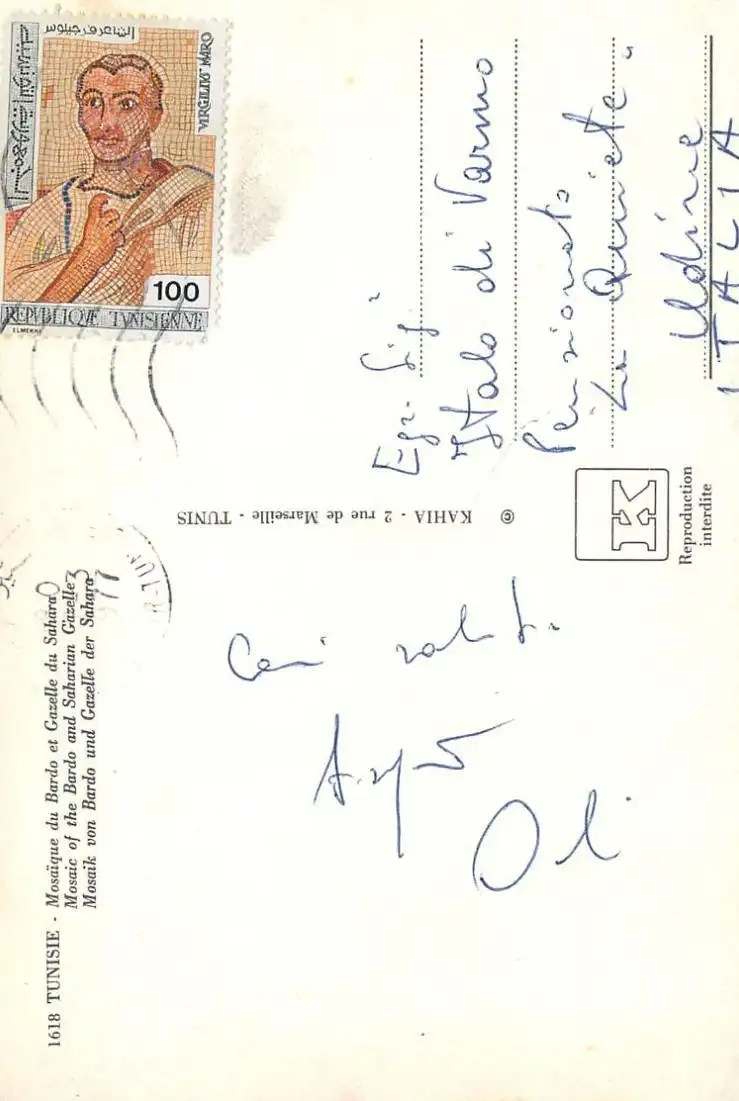 1618 TUNISIE - Mosaïque du Bardo et Gazelle du Sahara
Mosaic of the Bardo and Saharian Gazelle
Mosaik von Bardo und Gazelle der Sahara
Cari saluti.
KAHIA - 2 rue de Marseille - TUNIS ©
K
Reproduction
interdite
الشاعر فرجيليوس
VIRGILIVS MARO
الجمهورية التونسية
100
REPVBLIQVE TVNISIENNE
Egr. Sig.
Italo di Varmo
Pensionato
La Quiete.
Udine
ITALIA